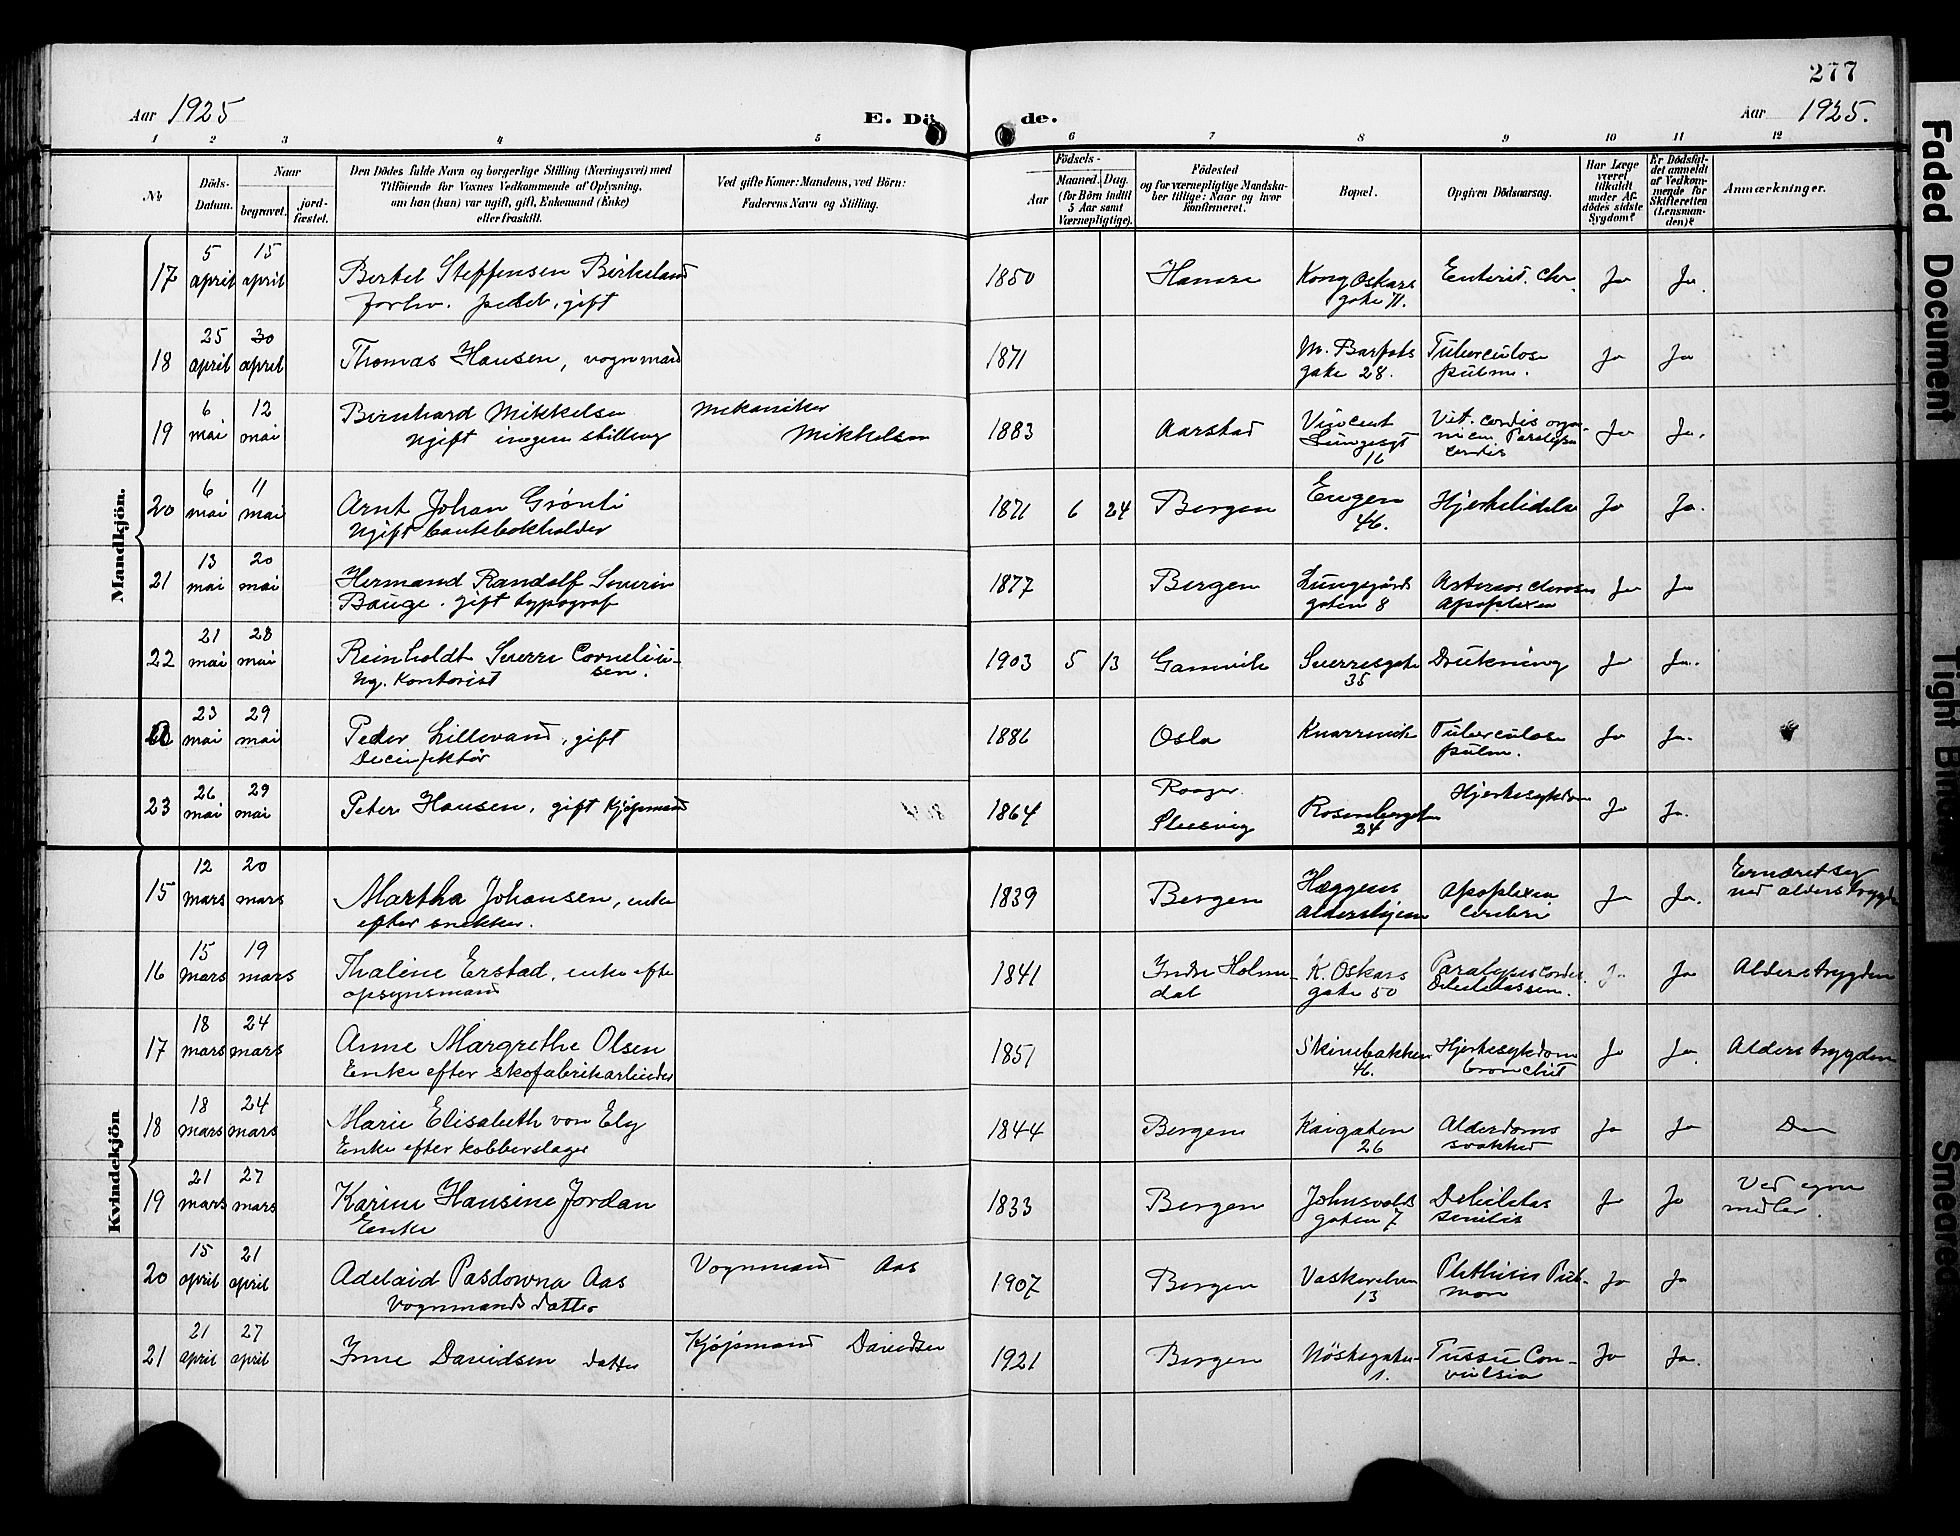 277
Aar 1925
E. Dö de.
Aar 1925.
1 2 3 4 5 6 7 8 9 10 11 12
No
Döds-Datum.
Naar
begravet.
jord-fæstet.
Den Dödes fulde Navn og borgerlige Stilling (Næringsvei) med
Tilföiende for Voxnes Vedkommende af Oplysning,
om han (hun) var ugift, gift, Enkemand (Enke)
eller fraskilt.
Ved gifte Koner: Mandens, ved Börn:
Faderens Navn og Stilling.
Födsels-
Aar
Maaned. Dag.
(for Börn indtil
5 Aar samt
Værnepligtige).
Födested
og for værnepligtige Mandska-
ber tillige: Naar og hvor
konfirmeret.
Bopæl.
Opgiven Dödsaarsag.
Har Læge
været
tilkaldt
under Af-
dödes sidste
Sygdom?
Er Dödsfal-
det anmeldt
af Vedkom-
mende for
Skifteretten
(Lensman-
den)?
Anmærkninger.
Mandkjön.
17 5 april 15 april Bertel Steffensen Birkeland
forhv. pedel, gift
1850 Kong Oskars gate 71. Enterit. chr. Ja Ja.
18 25 april 30 april Thomas Hansen, vognmand
1871 M. Barfots gate 28. Tuberculose pulm. Ja Ja
19 6 mai 12 mai Bernhard Mikkelsen
Ugift ingen stilling
Mekaniker Mikkelsen
1883 Aarstad Vincent Lungesgt 16 Vit. cordis orga-
nicum. Paralysis cordis Ja Ja.
20 6 mai 11 mai Arnt Johan Grønli
Ugift bankbokholder
1871 6 24 Bergen Engen 46. Hjertelidelse Ja Ja.
21 13 mai 20 mai Hermand Randolf Severin
Bauge. gift typograf
1877 Bergen Lungegårds gaten 8 Arteriosclerose Apoplexia Ja Ja
22 21 mai 28 mai Reinholdt Sverre Corneliu-
sen.
Ug. Kontorist
1903 5 13 Gamvik Sverresgate 35 Drukning Ja Ja.
23 mai 29 mai Peder Lillevand, gift
Decinfektør
1886 Oslo Knarrevik Tuberculose pulm. Ja Ja.
23 26 mai 29 mai Peter Hansen, gift Kjøpmand
1864 Slesvig Rosenbergsgaten 24 Hjertesygdom Ja Ja.
Kvindekjön
15 12 mars 20 mars Martha Johansen, enke
efter snekker.
1839 Bergen Hæggens Aldershjem Apoplexia cerebri Ja Ja. Ernæret seg
ved alderstrygden
16 15 mars 19 mars Thaline Erstad, enke efter
opsynsmand
1841 Indre Holme-
dal K. Oskars gate 50 Paralysis cordis. Ja Alderstrygden
17 18 mars 24 mars Anne Margrethe Olsen
Enke efter skofabrikarbeider
1851 Skivebakken 46. Hjertesygdom bronchit Ja Ja. Alderstrygden
18 18 mars 24 mars Marie Elisabeth von Ely
Enke efter kobberslager
1844 Bergen Kaigaten 26 Alderdoms svakhed Ja Ja Do
19 21 mars 27 mars Karine Hansine Jordan
Enke
1833 Bergen Johnsvolds gaten 7 Debilitas senilis Ja Ja Ved egne
midler.
20 15 april 21 april Adelaid Pasdowna Aas
Vognmands datter
Vognmand Aas
1907 Bergen Vaskerelven 13 Phthisis Pul-
mon Ja Ja
21 21 april 27 april Inne Davidsen datter
Kjøpmand Davidsen
1921 Bergen Nøstegaten 1. Tussis Con-
vulsiva Ja Ja.
Faded Document
Tight Binding
Sneared